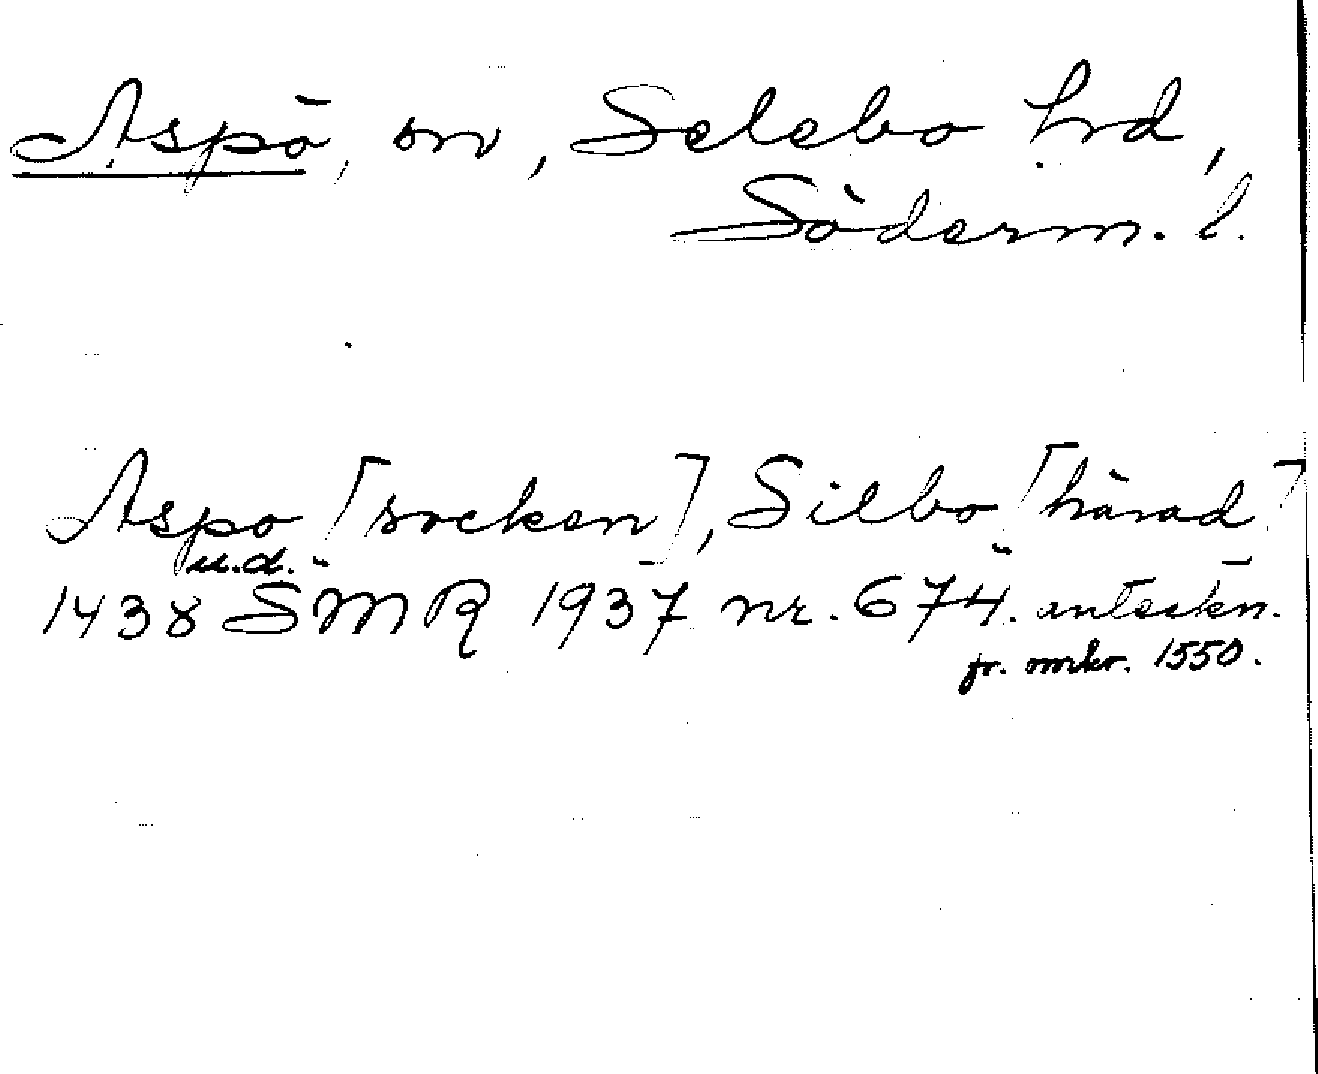 Aspö, sn, Selebo hd,
Söderm. l.
Aspo [socken], Silbo [härad]
u.d.
1438 SMR 1937 nr. 674. anteckn.
fr. 1550.